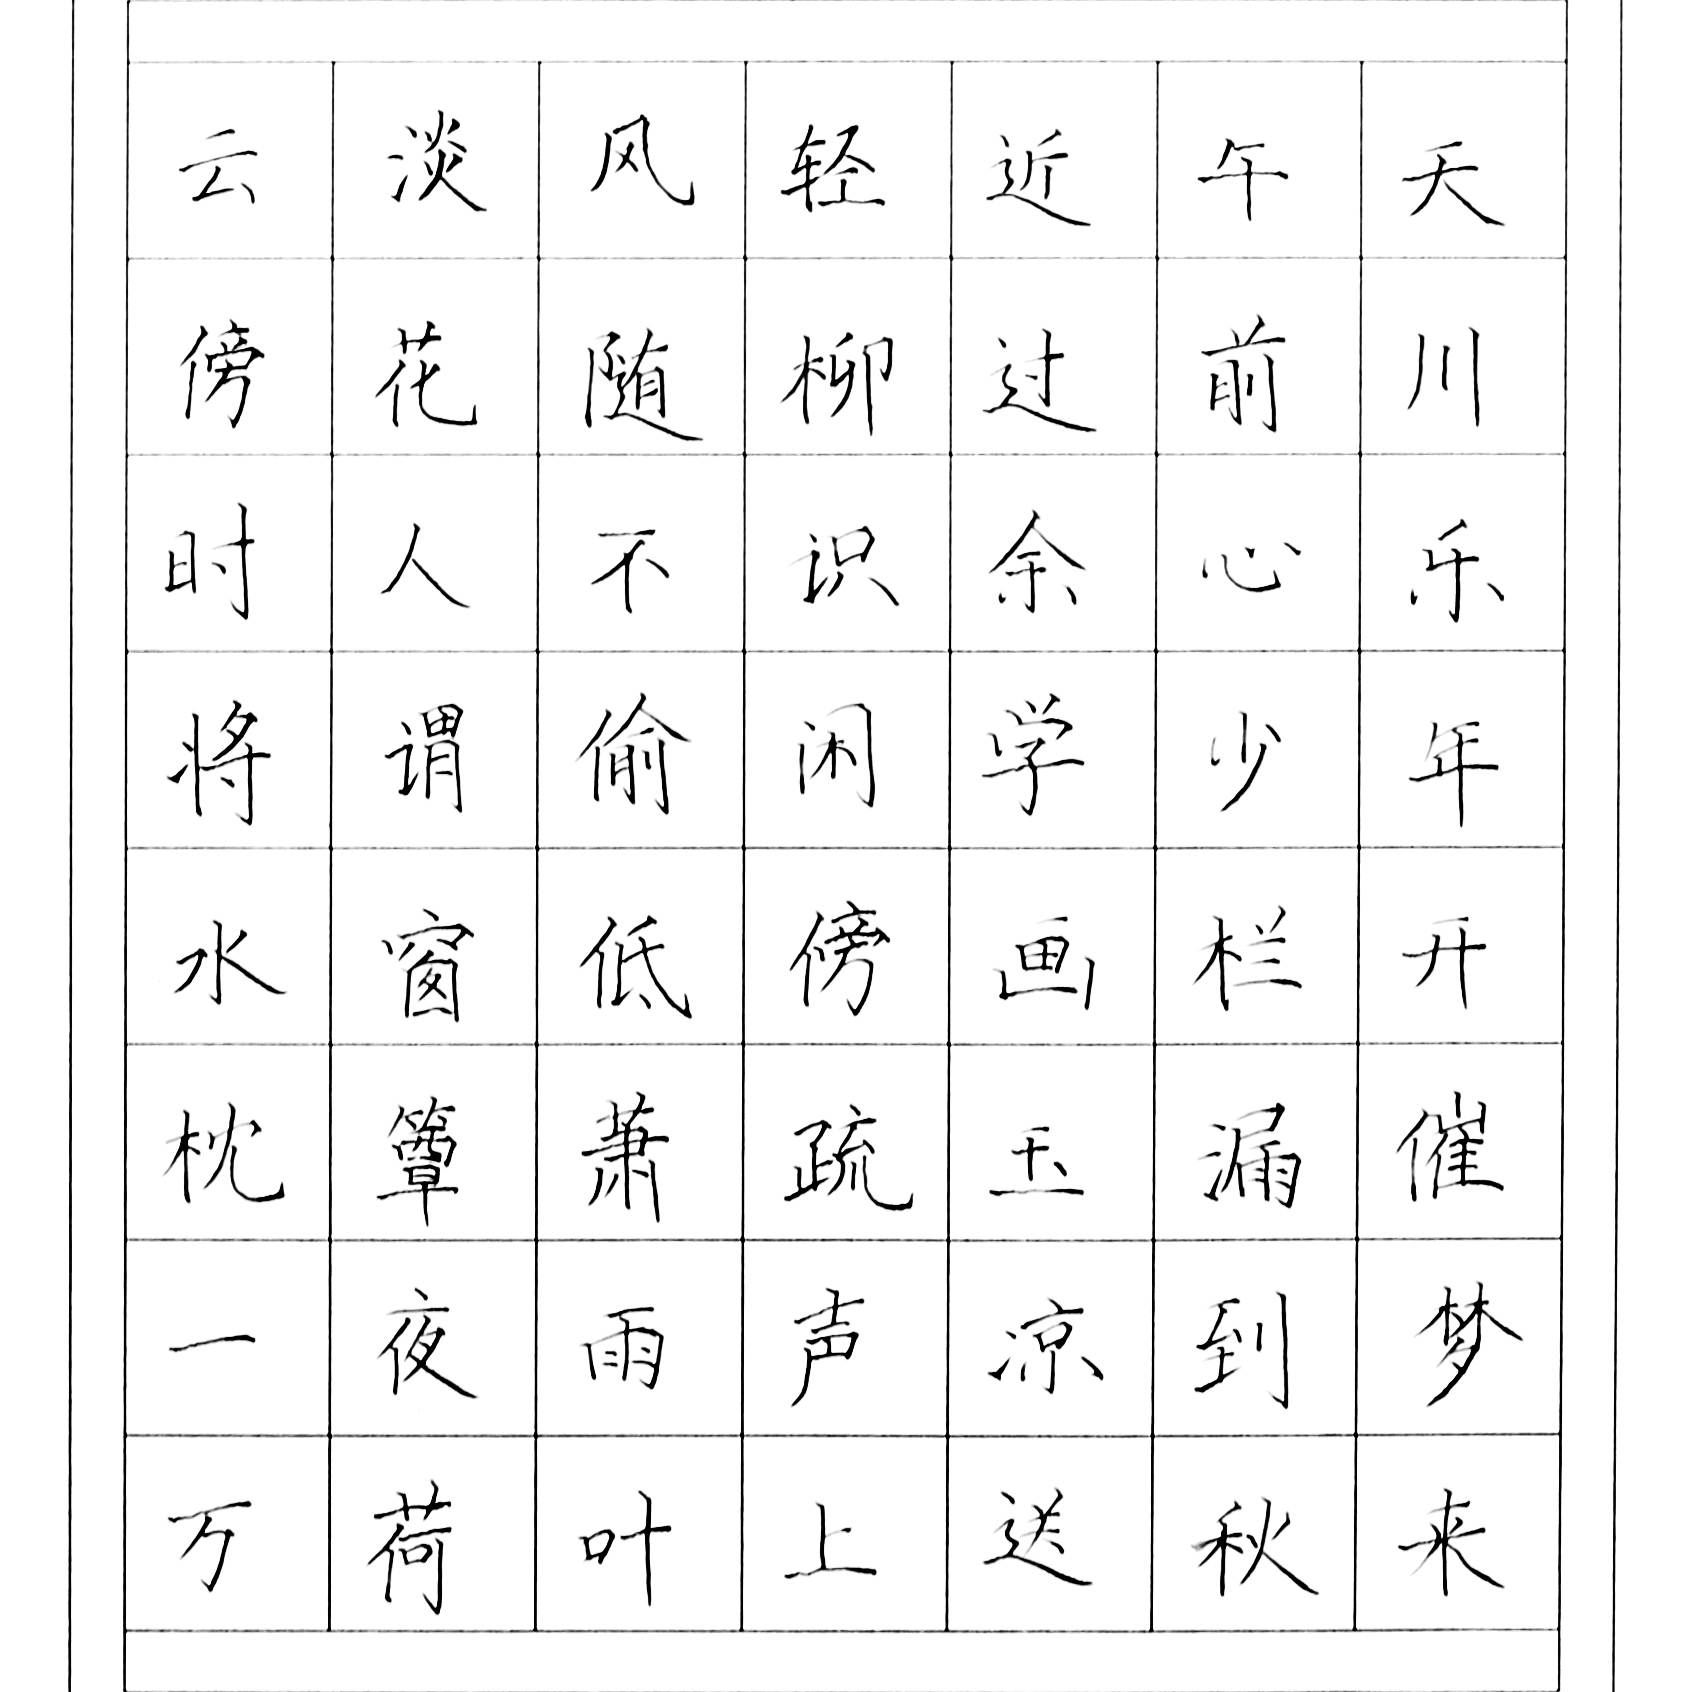 云淡风轻近午天
傍花随柳过前川
时人不识余心乐
将谓偷闲学少年
水窗低傍画栏开
枕簟萧疏玉漏催
一夜雨声凉到梦
万荷叶上送秋来